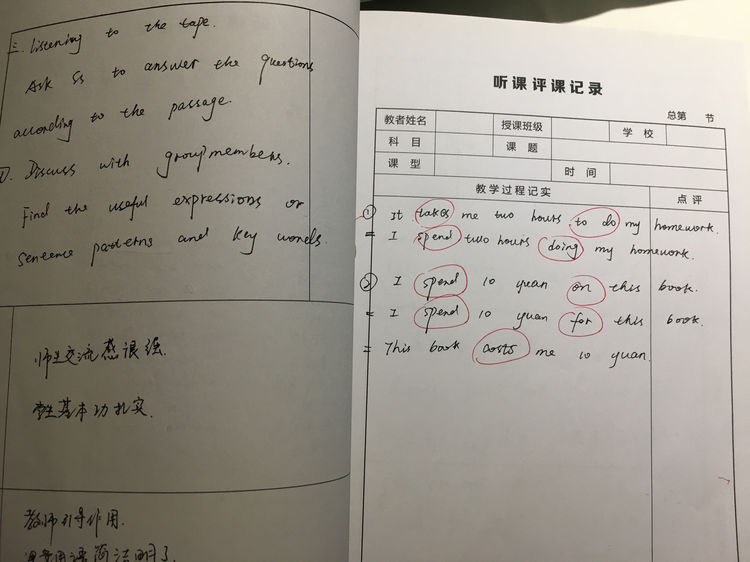 三. Listening to the tape.
Ask Ss to answer the questions
according to the passage.
Discuss with group members.
Find the useful expressions or
sentence patterns and key words.
师生交流感很强.
学生基本功扎实.
教师引导作用.
课堂用语简洁明了
听课评课记录
总第 节
教者姓名 授课班级 学校
科目 课题
课型 时间
教学过程记实 点评
① It takes me two hours to do my homework.
= I spend two hours doing my homework.
② I spend 10 yuan on this book.
= I spend 10 yuan for this book.
= This book costs me 10 yuan.